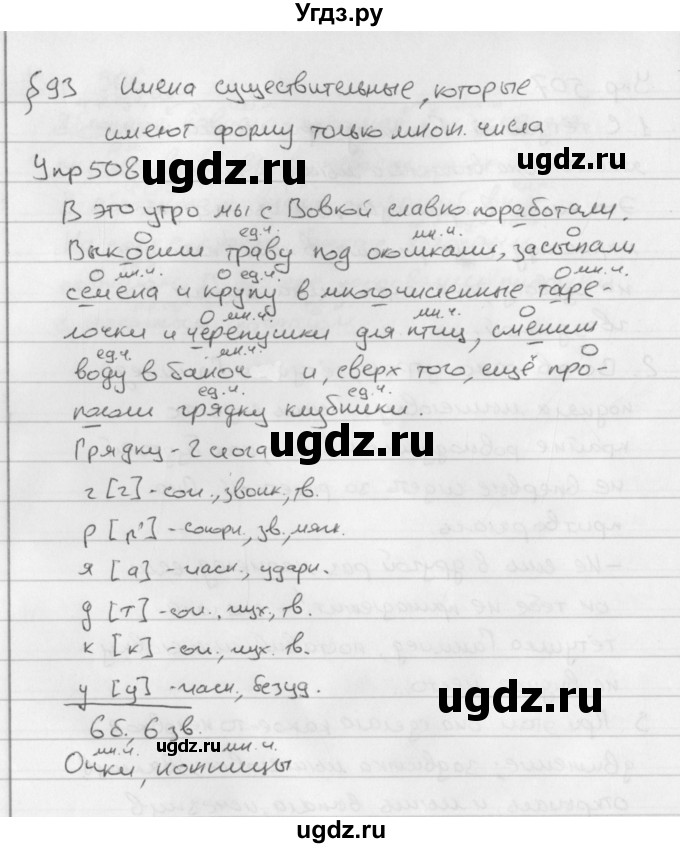 Угдз.ру
§ 93 Имена существительные, которые
имеют форму только множ. числа
Упр 508
ugdz.ru
В это утро мы с Вовкой славно поработали.
ед.ч. мн.ч.
Выкосили траву под окошками, засыпали
мн.ч. ед.ч. мн.ч.
семена и крупу в многочисленные таре-
мн.ч. мн.ч.
лочки и черепушки для птиц, сменили
ед.ч. мн.ч.
воду в баноч и, сверх того, ещё про-
ugdz.ru
ед.ч. ед.ч.
пололи грядку клубники.
Грядку - 2 слога
ugdz.ru
г [г] - согл., звонк., тв.
р [р'] - сонорн., зв., мягк.
я [а] - гласн., ударн.
д [т] - согл., глух., тв.
к [к] - согл., глух. тв.
у [у] - гласн., безуд.
ugdz.ru
6 б., 6 зв.
ugdz.ru
мн.ч. мн.ч.
Очки, ножницы
ugdz.ru
ugdz.ru